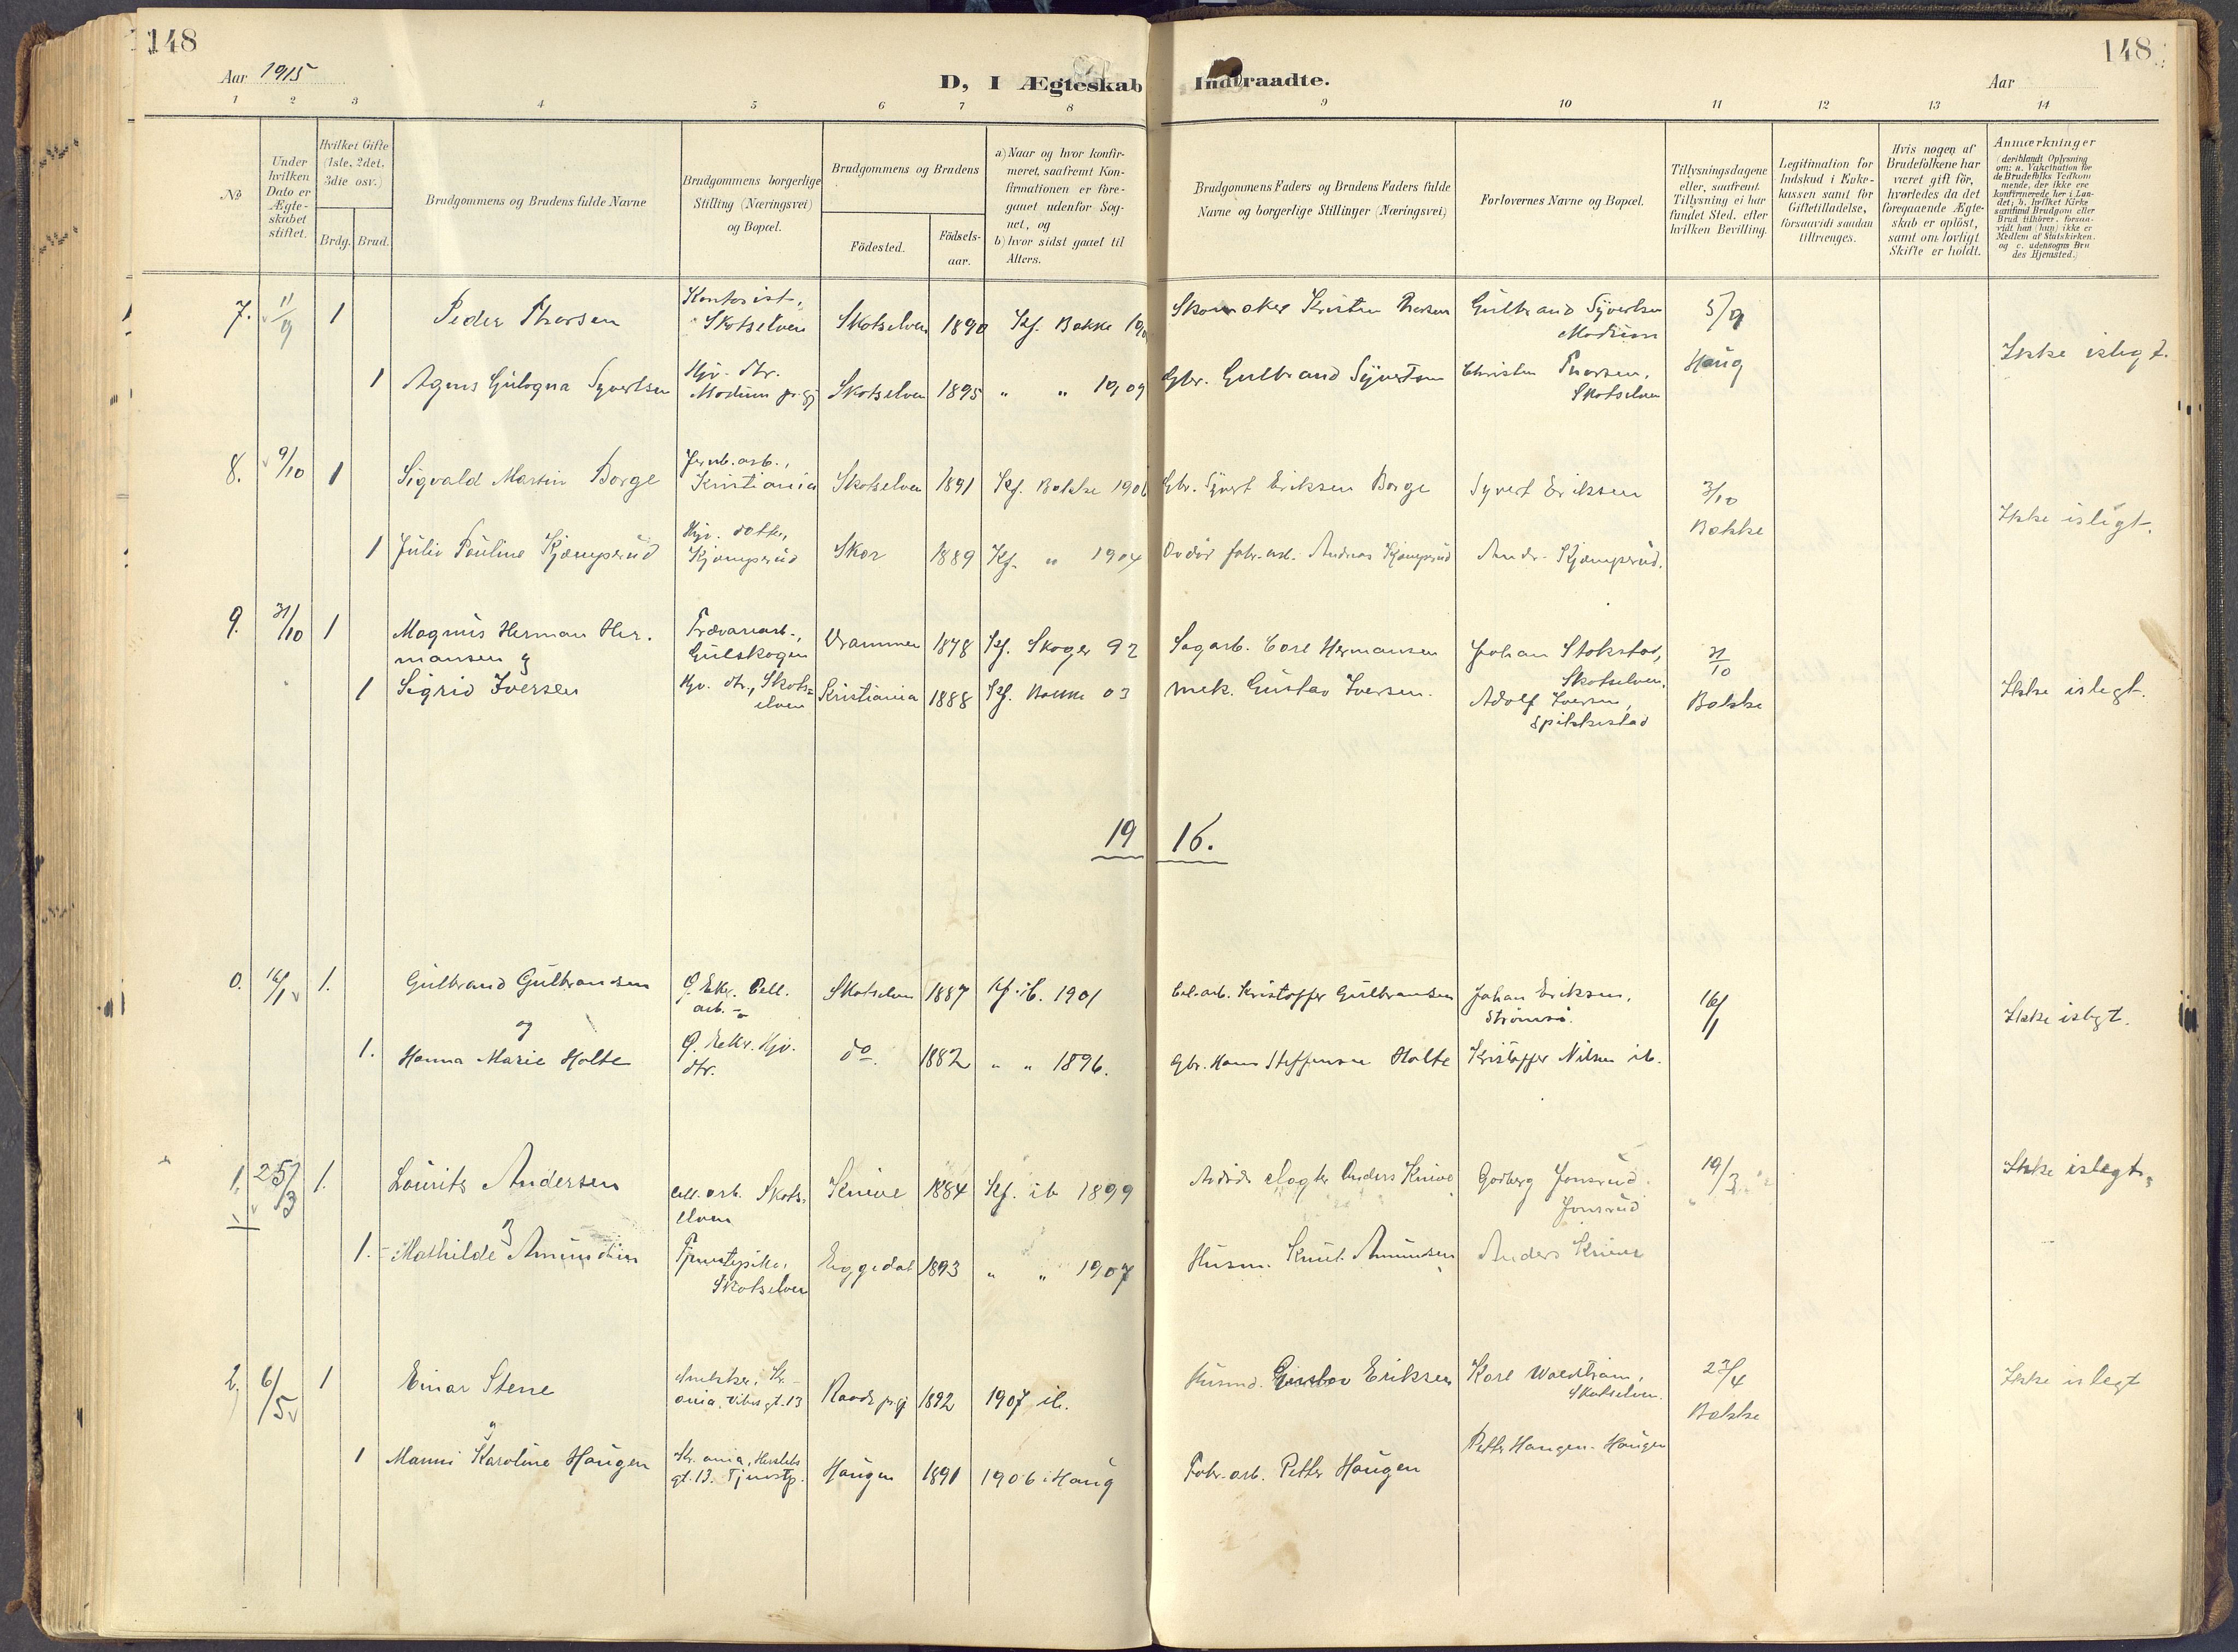 148
148
Aar 1915
D, I Ægteskab Indtraadte.
Aar
1 2 3 4 5 6 7 8 9 10 11 12 13 14
No
Under hvilken Dato er Ægte-skabet stiftet.
Hvilket Gifte (1ste, 2det. 3die osv.)
Brdg. Brud.
Brudgommens og Brudens fulde Navne
Brudgommens borgerlige Stilling (Næringsvei) og Bopæl.
Brudgommens og Brudens
Födested.
Födsels-aar.
a) Naar og hvor konfir-meret, saafremt Kon-firmationen er fore-gaaet udenfor Sog-net, og
b) hvor sidst gaaet til Alters.
Brudgommens Faders og Brudens Faders fulde Navne og borgerlige Stillinger (Næringsvei)
Forlovernes Navne og Bopæl.
Tillysningsdagene eller, saafremt Tillysning ei har fundet Sted, efter hvilken Bevilling.
Legitimation for Indskud i Enke-kassen samt for Giftetilladelse, forsaavidt saadan tiltrænges.
Hvis nogen af Brudefolkene har været gift för, hvorledes da det foregaaende Ægte-skab er oplöst, samt om lovligt Skifte er holdt.
Anmærkninger
7. 11/9 1 Peder Thorsen Kontorist, Skotselven Skotselven 1890 Kf. Bakke Skomaker Kristen Thorsen Gulbrand Syvertsen Modum 5/9
Ikke islegt.
1 Agnes Syvertsen Hjv. dtr. Modum pr.gj Skotselven 1895 " " 1909 Gbr. Gulbrand Syvertsen Christen Thorsen, Skotselven Haug
8. 9/10 1 Sigvald Martin Borge Jernb.arb., Kristiania Skotselven 1891 Kf. Bakke 1906 Gbr. Syvert Eriksen Borge Syvert Eriksen 3/10
Bakke
Ikke islegt.
1 Julie Pauline Kjæmperud Hjv. datter, Kjæmperud Skar 1889 Kf. " 1904 fabr.arb. Andreas Kjæmperud Andr. Kjæmperud.
9. 31/10 1 Magnus Herman Her-
mansen og
Trævarearb., Gulskogen Drammen 1878 Kf. Skoger 92 Sagarb. Carl Hermansen Johan Stokstad, Skotselven. 31/10
1 Sigrid Iversen Hjv. dtr., Skots=elven Kristiania 1888 Kf. Bakke 03 Mek. Gustav Iversen. Adolf Iversen, Spikkestad Bakke
Ikke islegt.
19 16.
0. 16/1 1. Gulbrand Gulbrandsen Ø. Eker. Cell. arb. Skotselven 1887 Kf. ib. 1901 Cel.arb. Kristoffer Gulbransen Johan Eriksen, Strømsø. 16/1
og
Ikke islegt.
1. Hanna Marie Holte Ø. Eker. Hjv. dtr. do. 1882 " " 1896. Gbr. Hans Steffensen Holte Kristoffer Nilsen ib.
1. 25/3 1. Lourits Andersen Cell. arb. Skots-elven Knive 1884 Kf. ib 1899 Anders Knive Godberg Jonsrud Jonsrud 19/3
Ikke islegt.
og
1. Mathilde Amundsen Tjenestepike, Skotselven Eggedal 1893 " " 1907 Husm. Knut Amundsen Anders Knive
2. 6/5 1 Einar Stene Snekker, Kr.ania, Vibesgt.13 Raade pr.gj 1892 1907 ib. Husmd. Gustav Eriksen Karl Waldtham, Skotselven. 23/4
Bakke
Ikke islegt
og
1 Manni Karoline Haugen Kr.ania, Herslebs gt.13. Tjenestp. Haugen 1891 1906 i Haug Fabr.arb. Petter Haugen Petter Haugen. Haugen